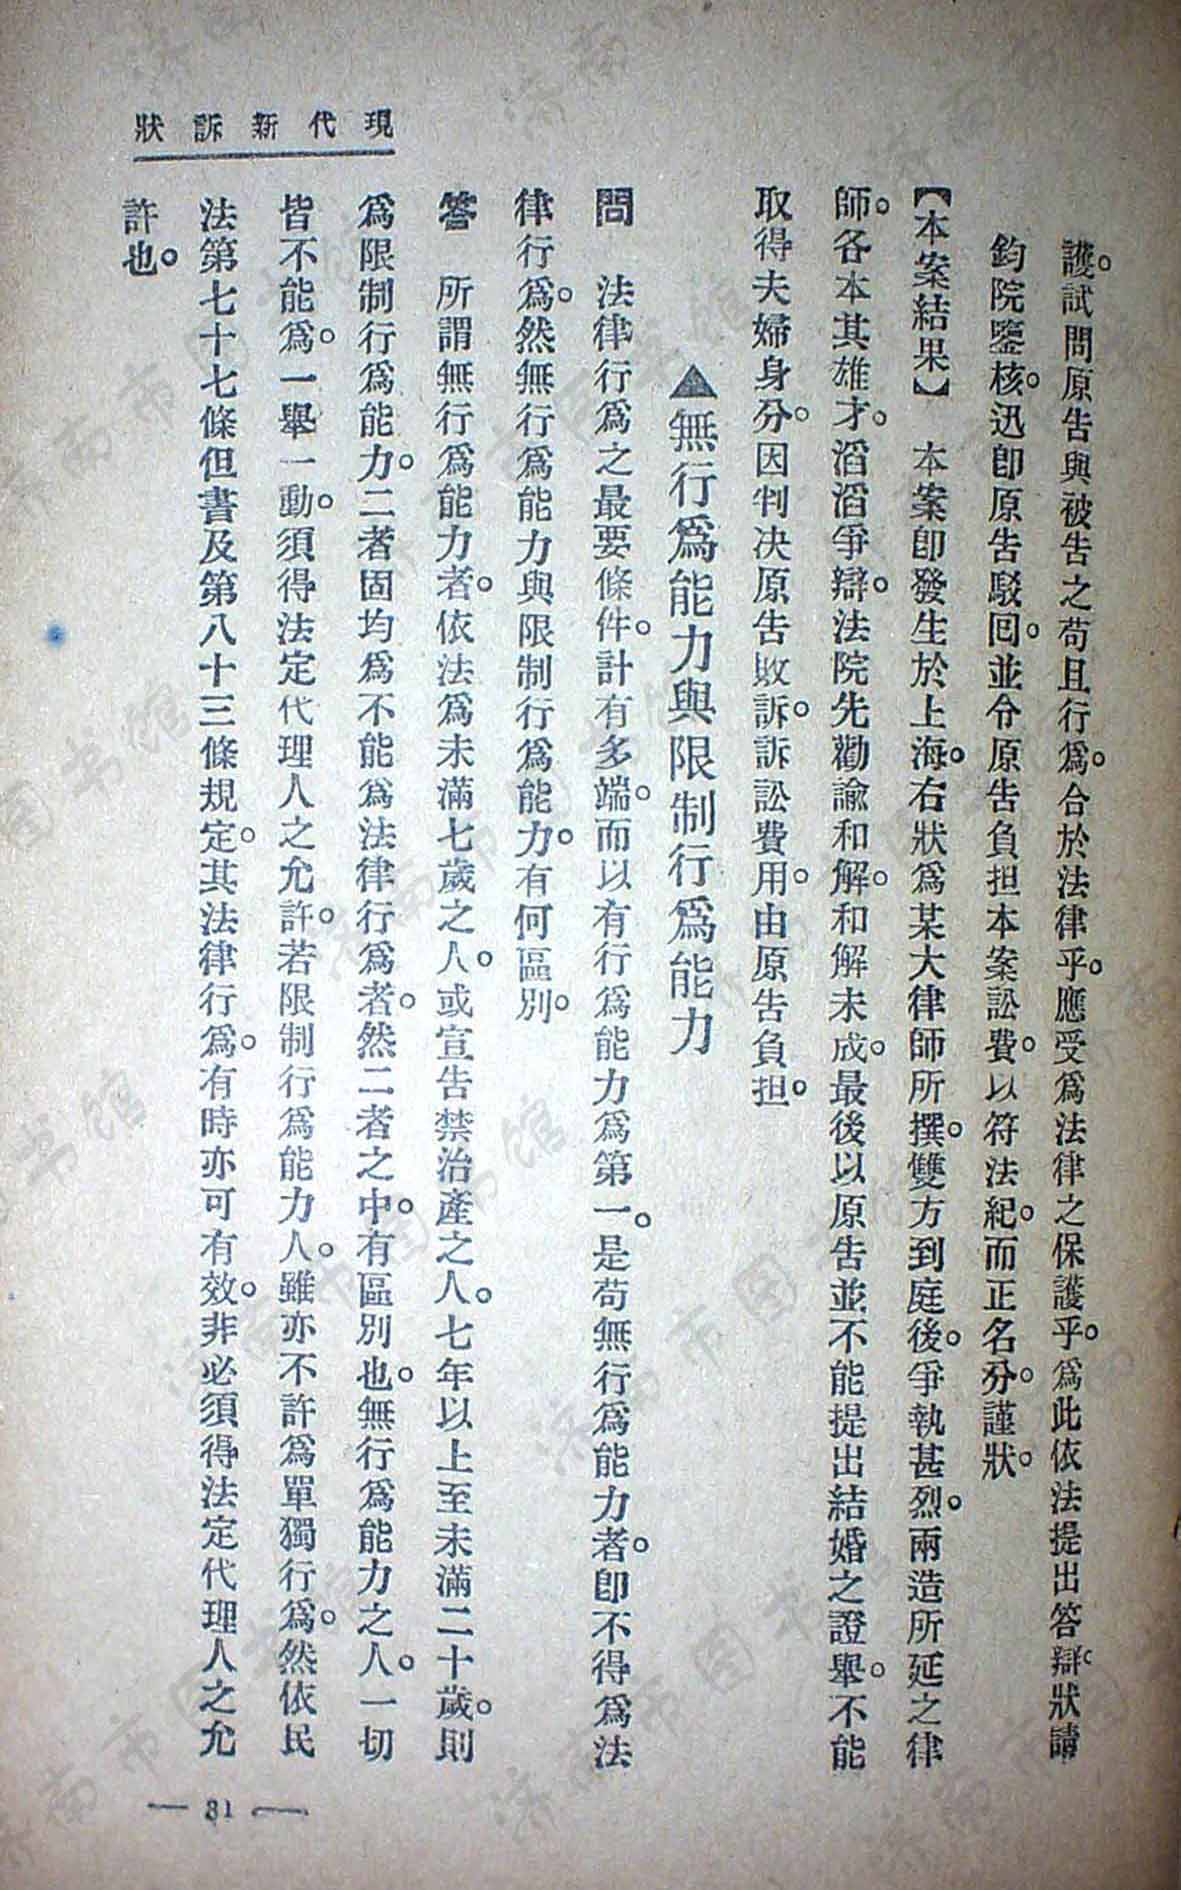 現代新訴狀
護。試問原告與被告之苟且行爲。合於法律乎。應受爲法律之保護乎。爲此依法提出答辯。狀請
鈞院鑒核。迅卽原告駁回。並令原告負担本案訟費。以符法紀。而正名分。謹狀。
【本案結果】　本案卽發生於上海。右狀爲某大律師所撰。雙方到庭後。爭執甚烈。兩造所延之律
師。各本其雄才。滔滔爭辯。法院先勸諭和解。和解未成。最後以原告並不能提出結婚之證舉。不能
取得夫婦身分。因判決原告敗訴。訴訟費用。由原告負担。
▲無行爲能力與限制行爲能力
問　法律行爲之最要條件。計有多端。而以有行爲能力爲第一。是苟無行爲能力者。卽不得爲法
律行爲。然無行爲能力與限制行爲能力。有何區別。
答　所謂無行爲能力者。依法爲未滿七歲之人。或宣告禁治產之人。七年以上至未滿二十歲。則
爲限制行爲能力。二者固均爲不能爲法律行爲者。然二者之中。有區別也。無行爲能力之人。一切
皆不能爲。一舉一動。須得法定代理人之允許。若限制行爲能力人。雖亦不許爲單獨行爲。然依民
法第七十七條但書及第八十三條規定。其法律行爲。有時亦可有效。非必須得法定代理人之允
許也。
— 81 —
濟南市图书馆